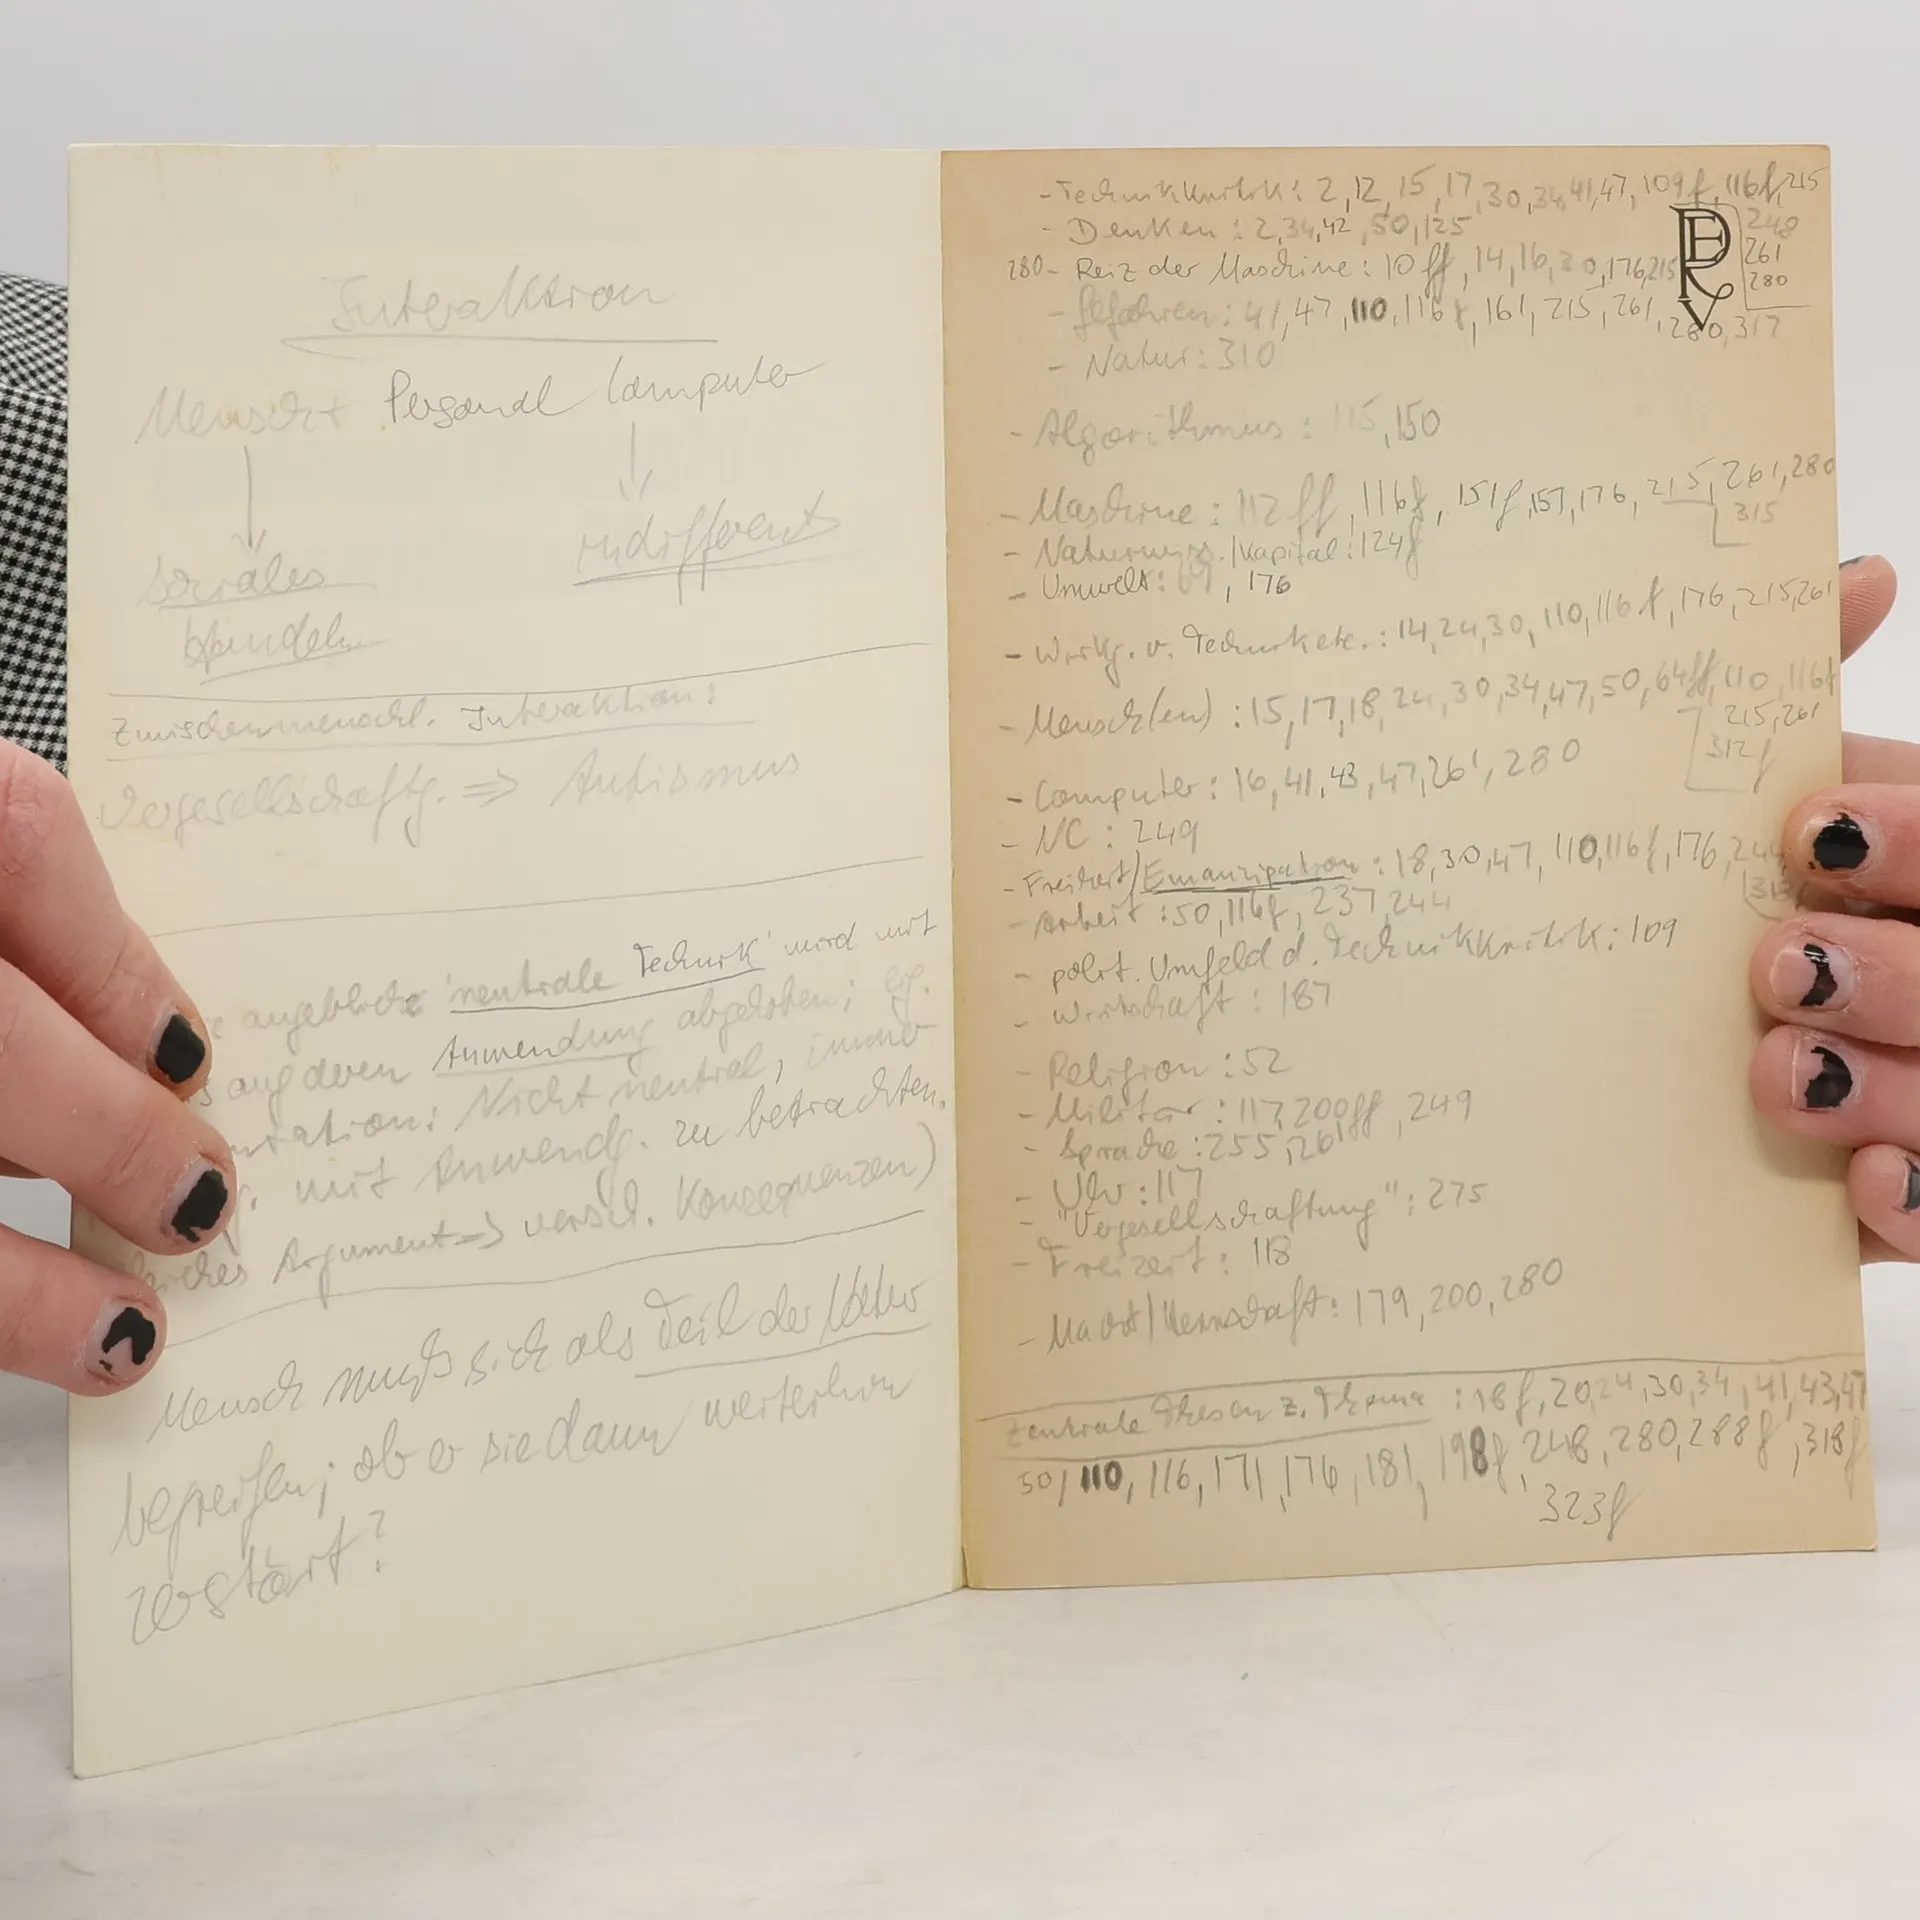 Interaktion
Mensch + Personal Computer
soziales
indifferent
Handeln
Zwischenmenschl. Interaktion:
Vergesellschaftg. => Autismus
angebliche 'neutrale Technik' wird mit
auf deren Anwendung abgehoben;
Nicht neutral, immer
mit Anwendg. zu betrachten.
Argument => versch. Konsequenzen)
Mensch muß sich als Teil der Natur
begreifen; ob er sie dann weiterhin
zerstört?
- Technikkritik: 2, 12, 15, 17, 30, 34, 41, 47, 109f, 116f, 215
248
- Denken: 2, 34, 42, 50, 125
261
280 - Reiz der Maschine: 10ff, 14, 16, 30, 176, 215
280
PEV
- Gefahren: 41, 47, 110, 116f, 161, 215, 261, 280, 317
- Natur: 310
- Algorithmus: 115, 150
- Maschine: 112ff, 116f, 151f, 157, 176, 215, 261, 280
315
- Naturwiss./Kapital: 124f
- Umwelt: 176
- Wirkg. v. Technik etc.: 14, 24, 30, 110, 116f, 176, 215, 261
- Mensch(en): 15, 17, 18, 24, 30, 34, 47, 50, 64ff, 110, 116f
215, 261
312f
- Computer: 16, 41, 43, 47, 261, 280
- NC: 249
- Freiheit/Emanzipation: 18, 30, 47, 110, 116f, 176, 244
313
- Arbeit: 50, 116f, 237, 244
- polit. Umfeld d. Technikkritik: 109
- Wirtschaft: 187
- Religion: 52
- Militär: 117, 200ff, 249
- Sprache: 255, 261ff
- Ulv: 117
- "Vergesellschaftung": 275
- Freizeit: 118
- Macht/Herrschaft: 179, 200, 280
Zentrale Thesen z. Thema: 18f, 20, 24, 30, 34, 41, 43, 47
50, 110, 116, 171, 176, 181, 198f, 248, 280, 288f, 318f
323f